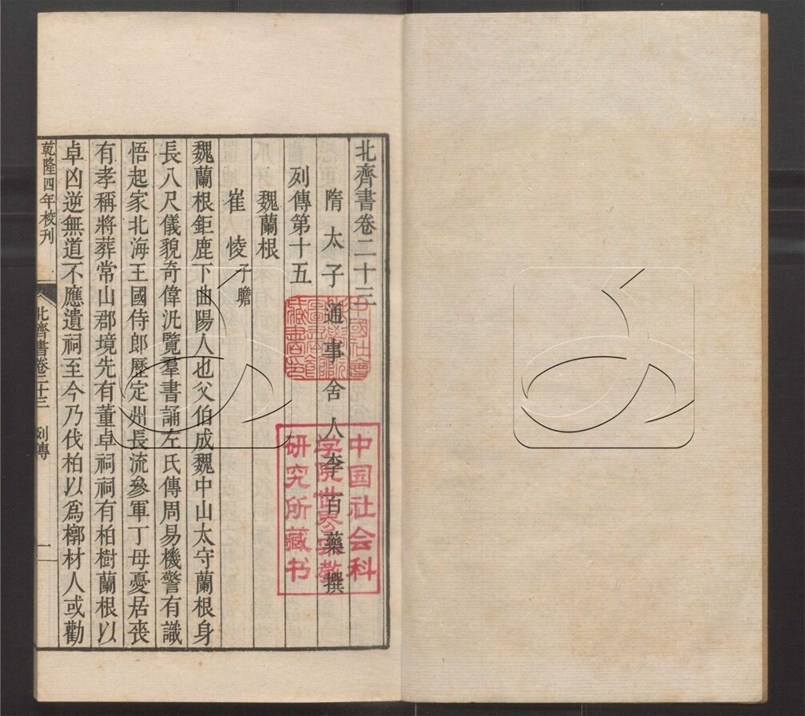 北齊書卷二十三
隋太子通事舍人李百藥撰
列傳第十五
魏蘭根
崔㥄子瞻
魏蘭根鉅鹿下曲陽人也父伯成魏中山太守蘭根身
長八尺儀貌奇偉汎覽羣書誦左氏傳周易機警有識
悟起家北海王國侍郎歷定州長流參軍丁母憂居喪
有孝稱將葬常山郡境先有董卓祠祠有柏樹蘭根以
卓凶逆無道不應遺祠至今乃伐柏以爲槨材人或勸
乾隆四年校刊
北齊書卷二十三 列傳 一
中國社會
藏書印
中国社会科
学院世界宗教
研究所藏书